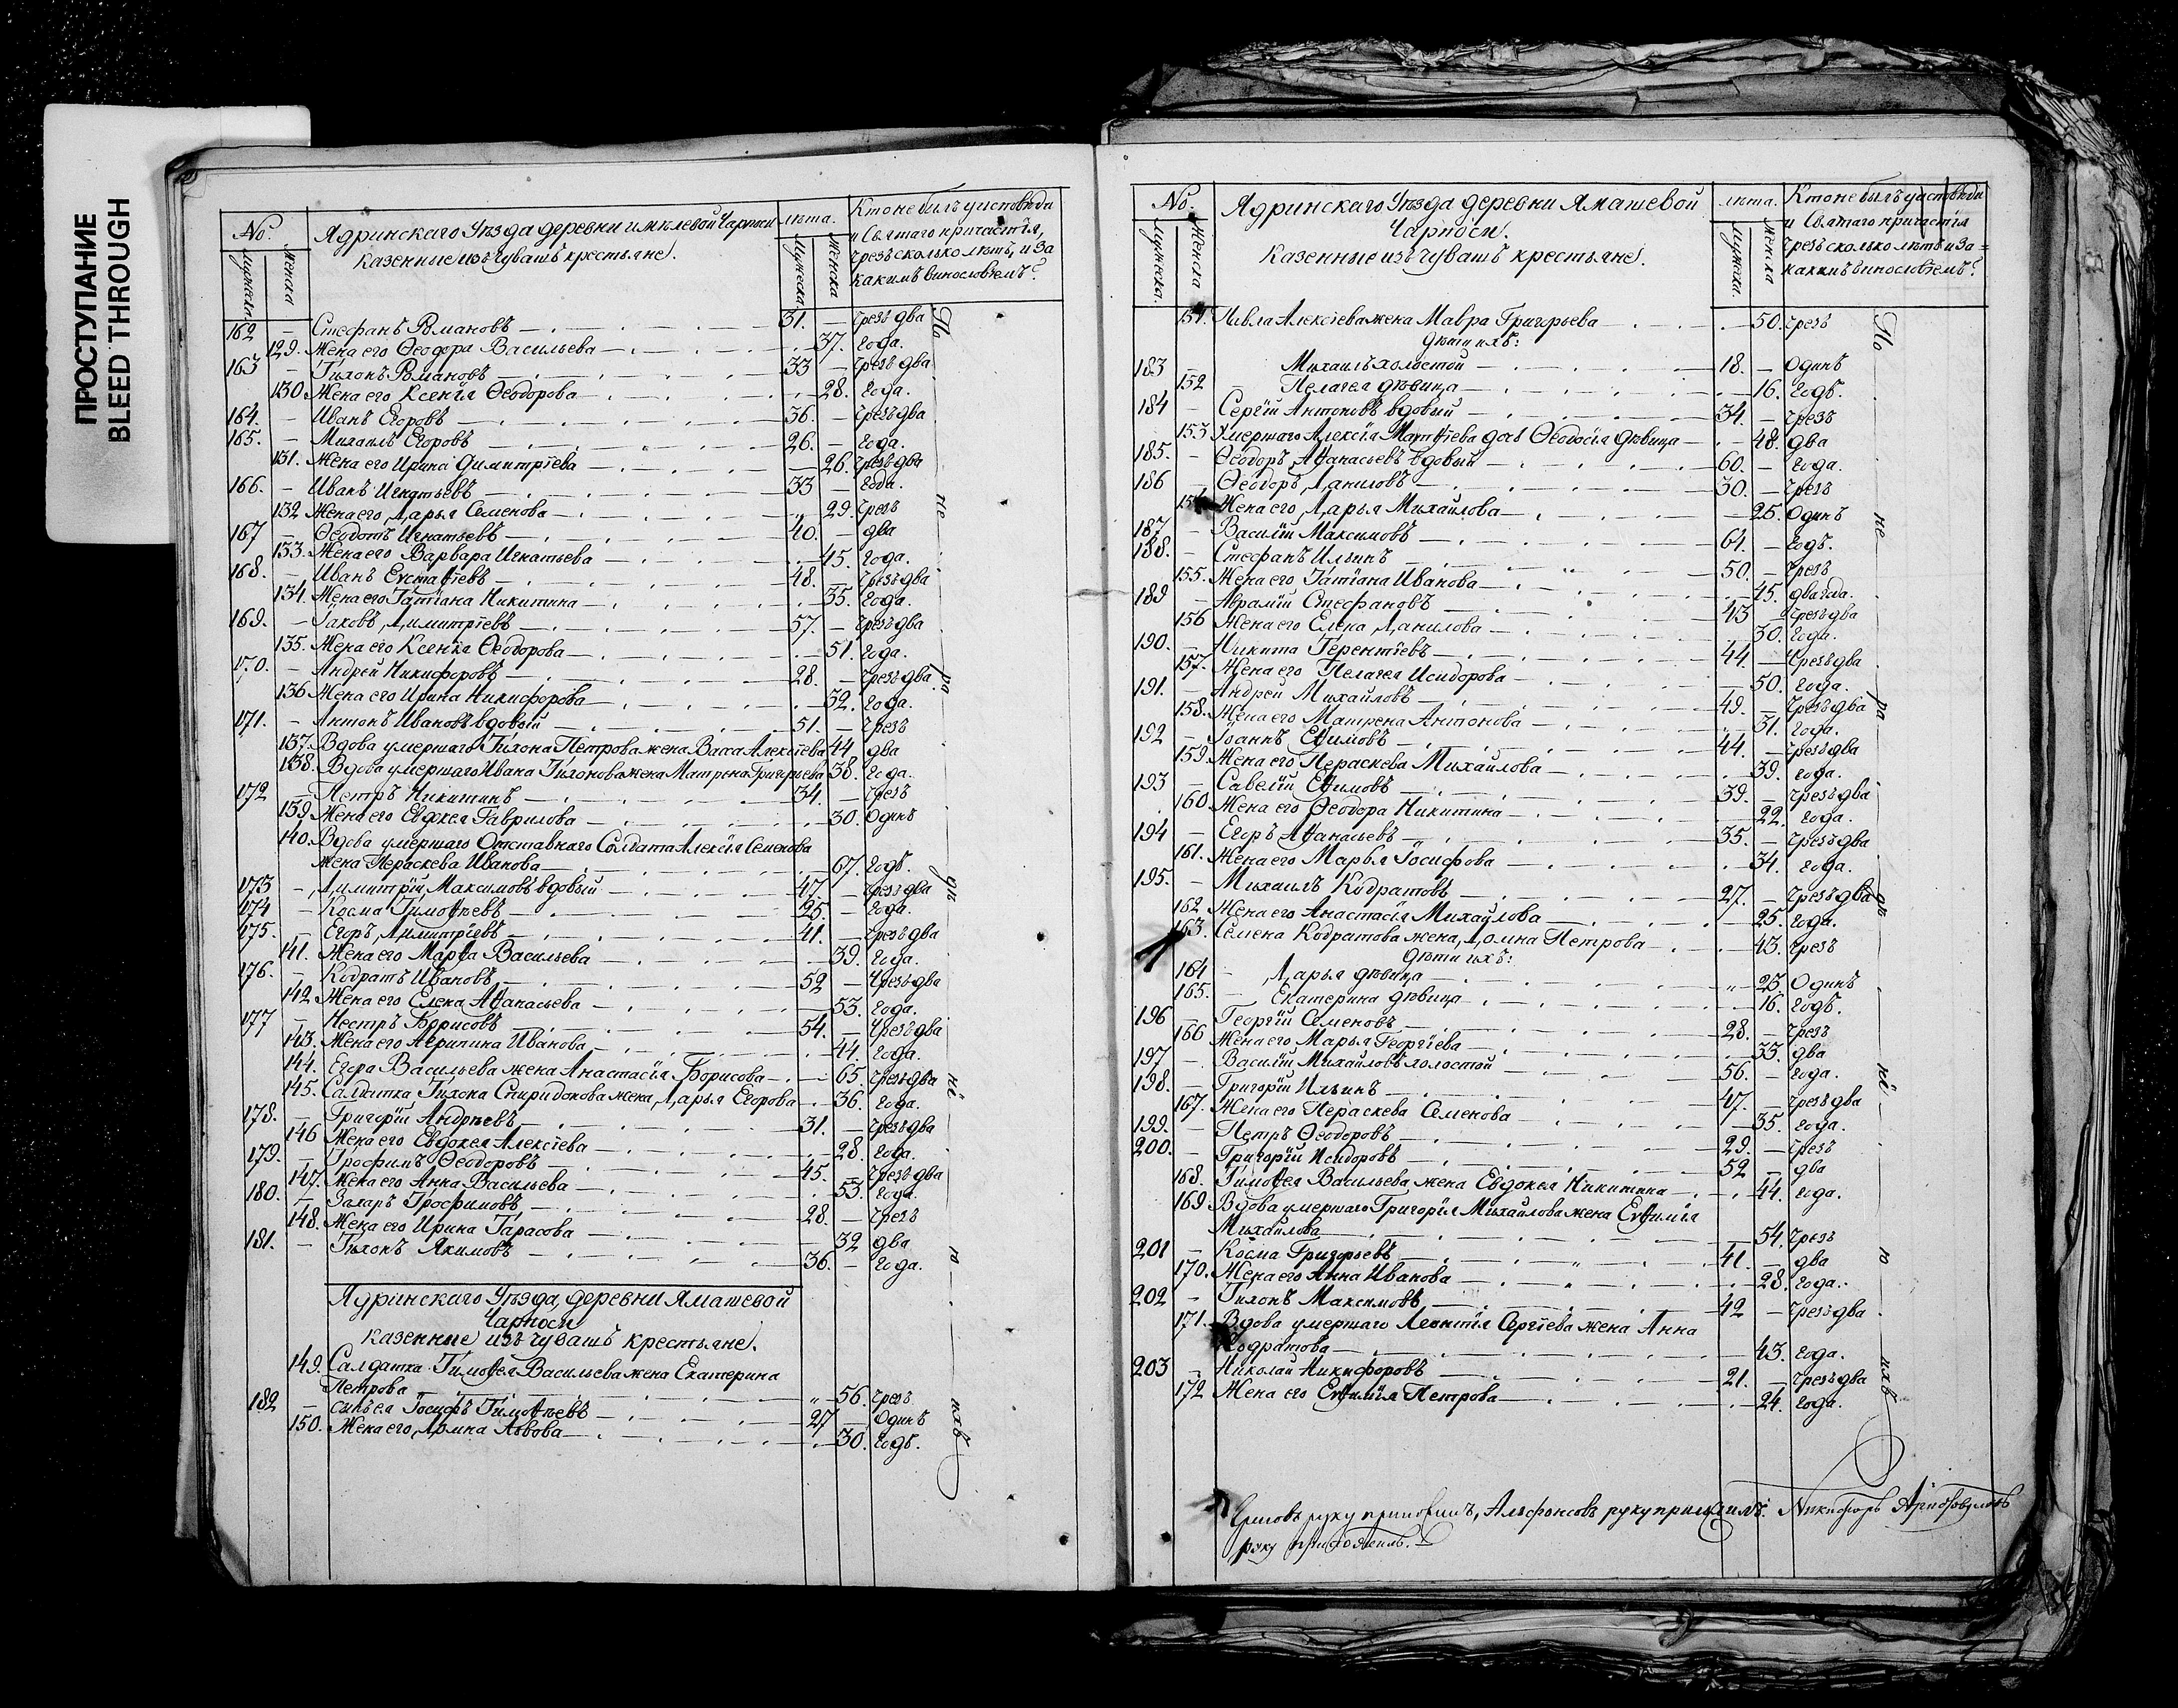 ПРОСТУПАНИЕ
BLEED THROUGH
No. Ядринскаго Уѣзда деревни Чарпоси
казенные изъ чувашъ крестьяне.
лѣта. Кто не былъ у исповѣди
и Святаго причастія,
чрезъ сколько лѣтъ, и за
какимъ винословіемъ?
Мужеска. Женска Мужеска. Женска
По не ра дѣ нї ю ихъ
162 – Стефанъ Романовъ – 31. – чрезъ два
129. Жена его Ѳеодора Васильева – 37. года.
163 – Тихонъ Романовъ – 33 – чрезъ два
130 Жена его Ксенїя Ѳеодорова – 28. года.
164. – Иванъ Егоровъ – 36. – чрезъ два
165. – Михаилъ Егоровъ – 26. – года.
131. Жена его Ирина Димитрїева – 26. чрезъ два
166. – Иванъ Игнатьевъ – 33 – года.
132 Жена его Дарья Семенова – 29. чрезъ
167 – Ѳеодотъ Игнатьевъ – 40. – два
133. Жена его Варвара Игнатьева – 45. года.
168. – Иванъ Евстаѳїевъ – 48. – чрезъ два
134. Жена его Татїана Никитина – 35. года.
169. – Їаковъ Димитрїевъ – 57. – чрезъ два
135. Жена его Ксенїя Ѳеодорова – 51. года.
170. – Андрей Никифоровъ – 28. – чрезъ два
136 Жена его Ирина Никифорова – 32. года.
171. – Антонъ Ивановъ вдовый – 51. – чрезъ
137. Вдова умершаго Тихона Петрова жена Васса Алексїева 44 два
138. Вдова умершаго Ивана Тихонова жена Матрена Григорьева 38. года.
172 – Петръ Никитинъ – 34. – чрезъ
139 Жена его Евдокея Гаврилова – 30. Одинъ
140. Вдова умершаго Отставнаго Солдата Алексїя Семенова
жена Пераскева Иванова – 67. годъ.
173 – Димитрїй Максимовъ вдовый – 47. – чрезъ два
174 – Косма Тимоѳѣевъ – 25. – года.
175. – Егоръ Димитрїевъ – 41. – чрезъ два
141. Жена его Марѳа Васильева – 39. года.
176. – Кодратъ Ивановъ – 52 – чрезъ два
142 Жена его Елена Аѳанасьева – 53. года.
177 – Нестръ Борисовъ – 54. – чрезъ два
143. Жена его Агрипина Иванова – 44. года.
144. Егора Васильева жена Анастасїя Борисова – 65. чрезъ два
145. Салдатка Тихона Спиридонова жена Дарья Егорова – 36. года.
178. – Григорїй Андрѣевъ – 31. – чрезъ два
146 Жена его Евдокея Алексїева – 28. года.
179. – Трофимъ Ѳеодоровъ – 45. – чрезъ два
147. Жена его Анна Васильева – 53. года.
180. – Захаръ Трофимовъ – 28. – чрезъ
148. Жена его Ирина Тарасова – 32 два
181. – Тихонъ Якимовъ – 36. – года.
Ядринскаго Уѣзда, деревни Яматевой
Чарпоси
казенные изъ чувашъ крестьяне.
149. Салдатка Тимоѳея Васильева жена Екатерина
Петрова – „ – 56. чрезъ
182 – сынъ ея Їосифъ Тимоѳѣевъ – 27 – Одинъ
150. Жена его Домна Львова – 30. годъ.
No. Ядринскаго Уѣзда деревни Яматевой
Чарпоси.
Казенные изъ чувашъ крестьяне.
лѣта. Кто не былъ у исповѣди
и Святаго причастїя
чрезъ сколько лѣтъ и за=
какимъ винословїемъ?
Мужеска. Женска Мужеска. Женска
По не ра дѣ нї ю ихъ
151. Павла Алексїева жена Мавра Григорьева – 50. чрезъ
дѣти ихъ:
183 – Михаилъ холостой – 18. – Одинъ
152 – Пелагея дѣвица – 16. годъ.
184 – Сергїй Антоновъ вдовый – 34. – чрезъ
153 Умершаго Алексїя Матѳїева дочь Ѳеодосїя дѣвица – 48. два
185. – Ѳеодоръ Аѳанасьевъ вдовый – 60. – года.
186 – Ѳеодоръ Даниловъ – 30. – чрезъ
154 Жена его Дарья Михайлова – 25. Одинъ
187 – Василїй Максимовъ – 61. – годъ.
188. – Стефанъ Ильинъ – 50. – чрезъ
155. Жена его Татїана Иванова – 45. два года.
189 – Аврамїй Стефановъ – 43 – чрезъ два
156 Жена его Елена Данилова – 30. года.
190. – Никита Терентїевъ – 44. – чрезъ два
157. Жена его Пелагея Исидорова – 50. года.
191. – Андрей Михайловъ – 49. – чрезъ два
158. Жена его Матрена Антонова – 31. года.
192 – Їоаннъ Еѳимовъ – 44. – чрезъ два
159 Жена его Пераскева Михайлова – 39. года.
193 – Савелїй Еѳимовъ – 39. – чрезъ два
160. Жена его Ѳеодора Никитина – 22. года.
194 – Егоръ Аѳанасьевъ – 35. – чрезъ два
161. Жена его Марья Їосифова – 34. года.
195. – Михаилъ Кодратовъ – 27. – чрезъ два
162 Жена его Анастасїя Михайлова – 25 года.
163. Семена Кодратова жена, Домна Петрова – 43. чрезъ
дѣти ихъ:
164 – Дарья дѣвица – „ – 23 Одинъ
165. – Екатерина дѣвица – 16. годъ.
196 – Георгїй Семеновъ – 28. – чрезъ
166 Жена его Марья Георгїева – 33. два
197 – Василїй Михайловъ холостой – 56. – года.
198. – Григорїй Ильинъ – 47. – чрезъ два
167. Жена его Пераскева Семенова – 35. года.
199. – Петръ Ѳеодоровъ – 29. – чрезъ
200. – Григорїй Исидоровъ – 52 – два
168. Тимоѳея Васильева жена Евдокея Никитина – 44. года.
169 Вдова умершаго Григорїя Михайлова жена Евѳимїя
Михайлова – 54. чрезъ
201 – Косма Григорьевъ – 41. – два
170. Жена его Анна Иванова – 28. года.
202 – Тихонъ Максимовъ – 42 – чрезъ два
171. Вдова умершаго Леонтїя Сергїева жена Анна
Кодратова – 43. года.
203 – Николай Никифоровъ – 21. – чрезъ два
172 Жена его Евѳимїя Петрова – 24. года.
руку приложилъ, руку приложилъ. Никифоръ
руку приложилъ.